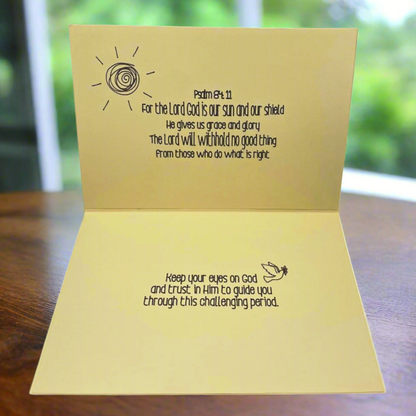 Psalm 84:11
For the Lord God is our sun and our shield
He gives us grace and glory
The Lord will withhold no good thing
from those who do what is right
Keep your eyes on God
and trust in Him to guide you
through this challenging period.